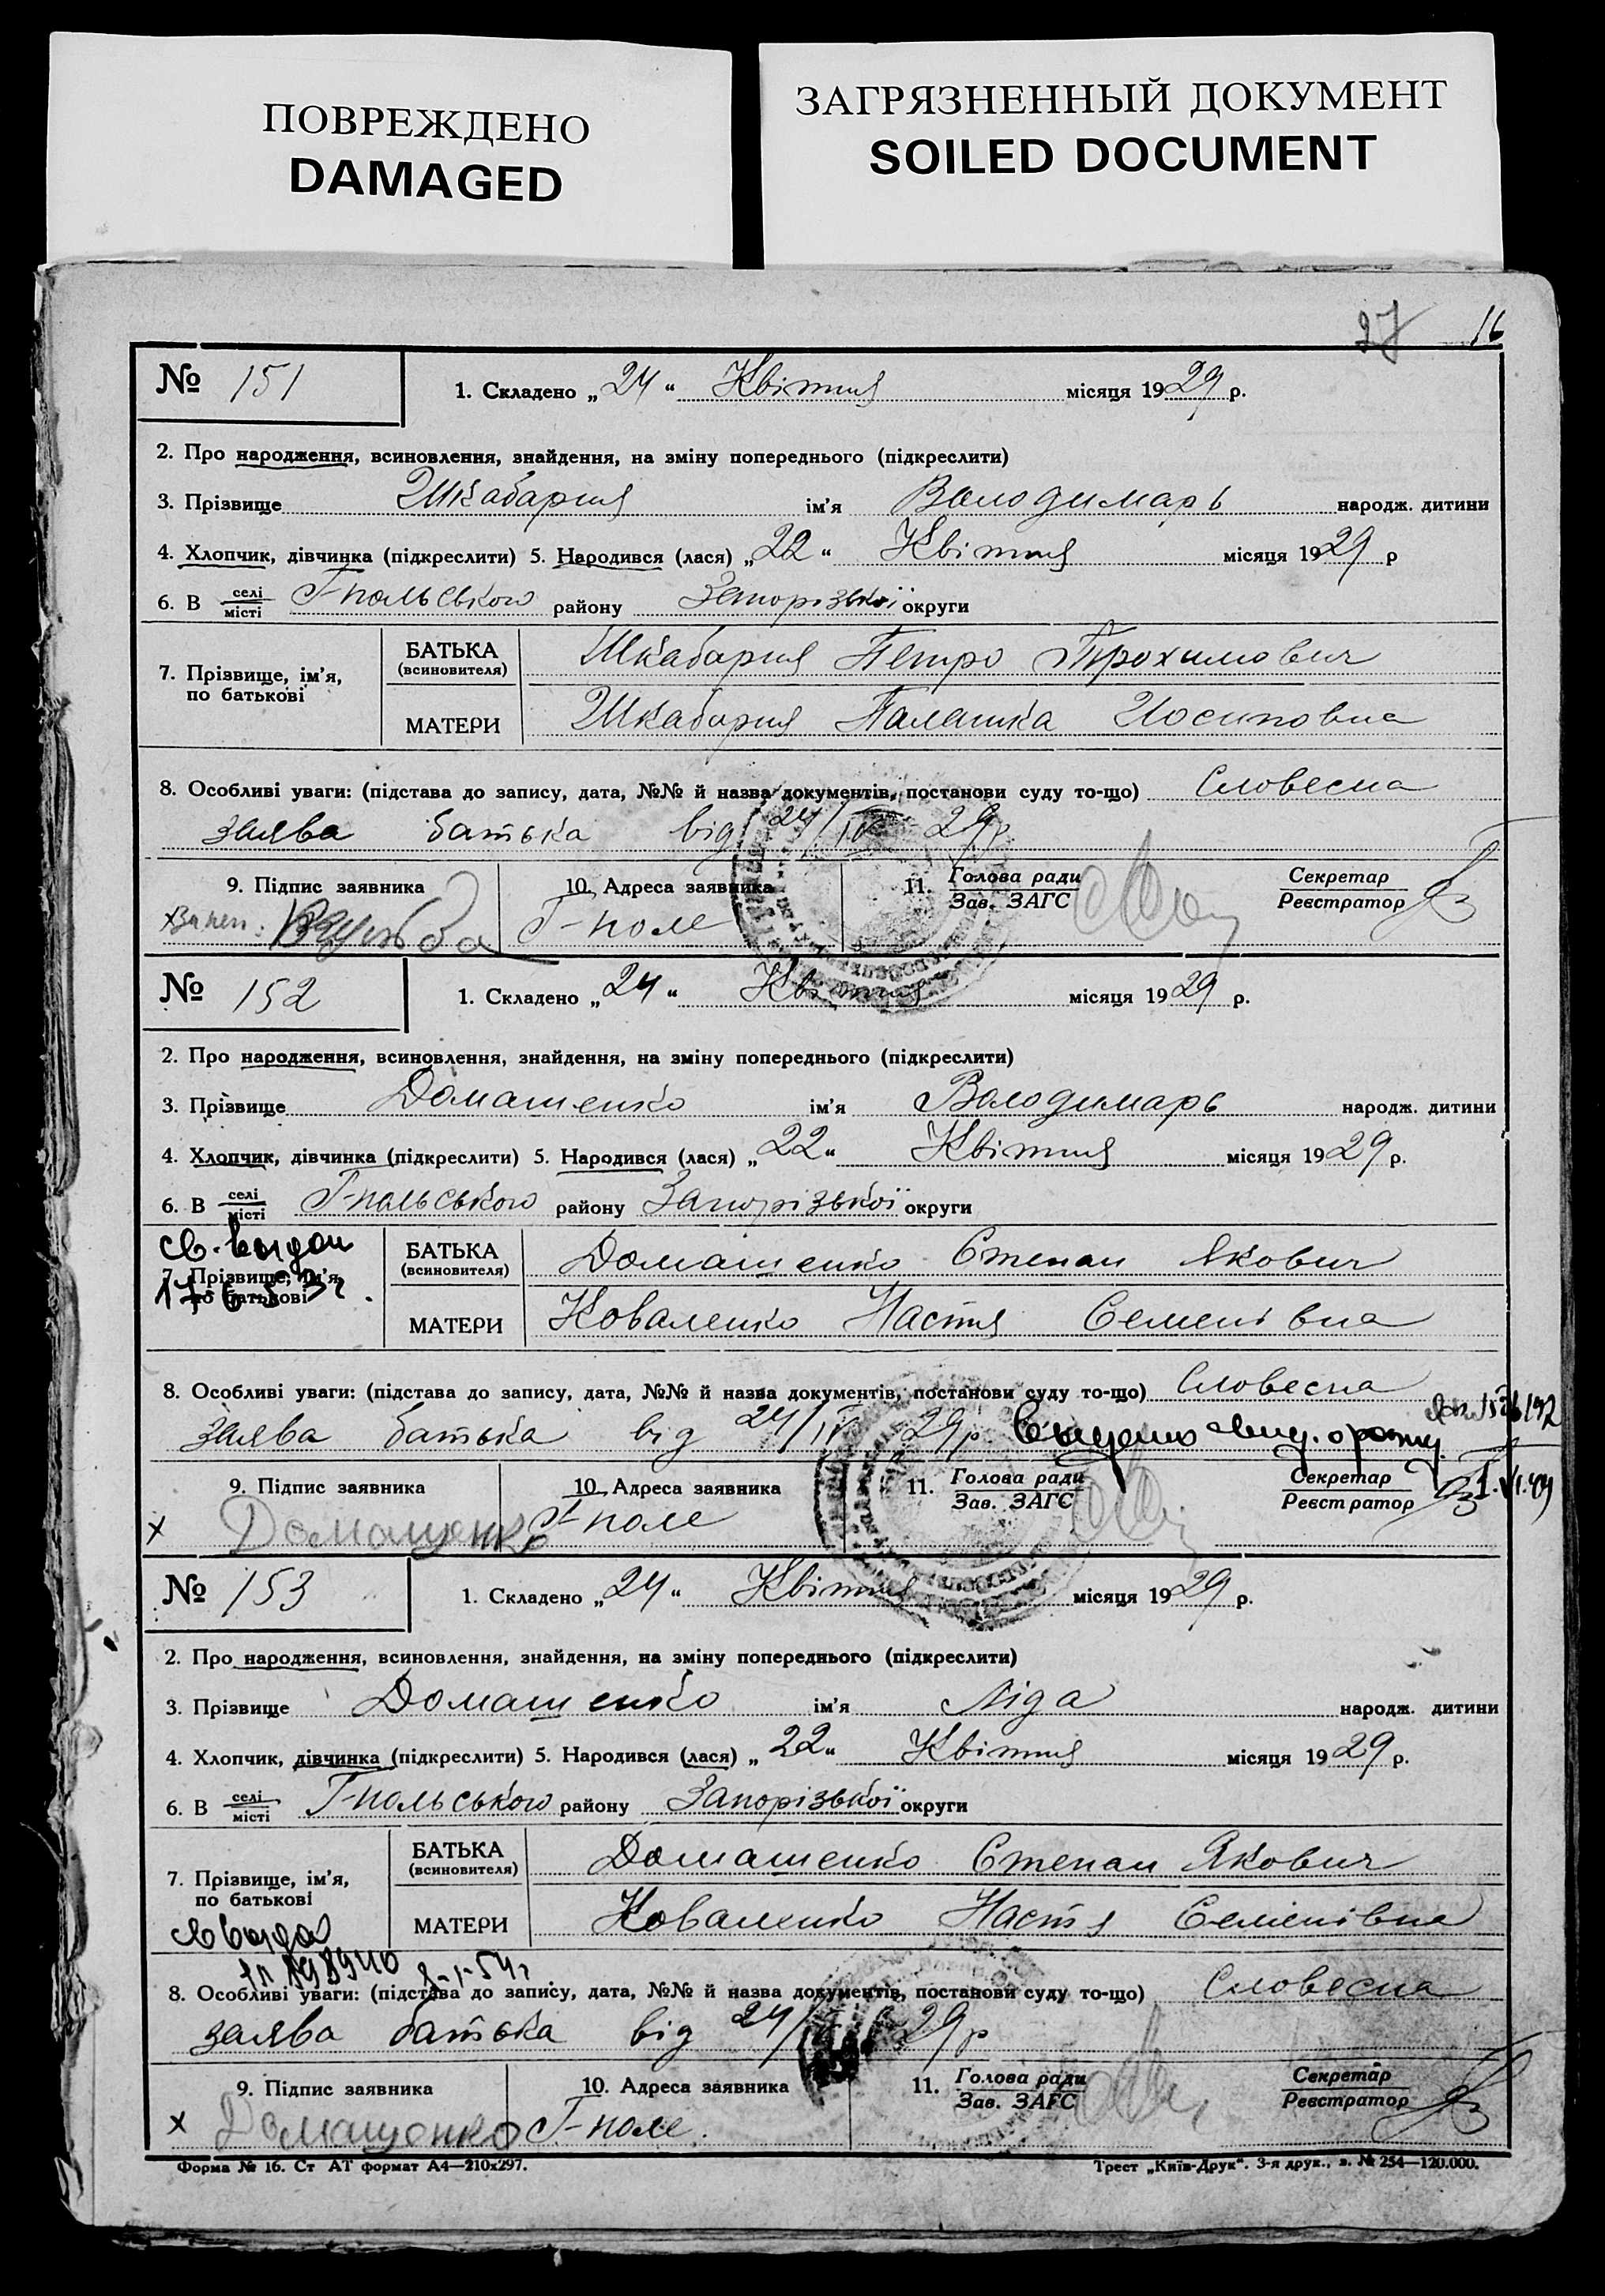 ПОВРЕЖДЕНО
DAMAGED
ЗАГРЯЗНЕННЫЙ ДОКУМЕНТ
SOILED DOCUMENT
27 16
№ 151 1. Складено „24“ Квітня місяця 1929 р.
2. Про народження, всиновлення, знайдення, на зміну попереднього (підкреслити)
3. Прізвище Шкабарня ім'я Володимарь народж. дитини
4. Хлопчик, дівчинка (підкреслити) 5. Народився (лася) „22“ Квітня місяця 1929 р
6. В селі місті Г-польського району Запорізької округи
7. Прізвище, ім'я, по батькові
БАТЬКА (всиновителя) Шкабарня Петро Трохимович
МАТЕРИ Шкабарня Палашка Иосиповна
8. Особливі уваги: (підстава до запису, дата, №№ й назва документів, постанови суду то-що) Словесна
заява батька від 24/IV 29р
9. Підпис заявника 10. Адреса заявника 11. Голова ради Зав. ЗАГС Секретар Реєстратор
Г-поле
№ 152 1. Складено „24“ Квітня місяця 1929 р.
2. Про народження, всиновлення, знайдення, на зміну попереднього (підкреслити)
3. Прізвище Домашенко ім'я Володимарь народж. дитини
4. Хлопчик, дівчинка (підкреслити) 5. Народився (лася) „22“ Квітня місяця 1929 р.
6. В селі місті Г-польського району Запорізької округи
св. выдан
7. Прізвище, ім'я, по батькові
БАТЬКА (всиновителя) Домашенко Степан Якович
МАТЕРИ Коваленко Настя Семенівна
8. Особливі уваги: (підстава до запису, дата, №№ й назва документів, постанови суду то-що) Словесна
заява батька від 24/IV 29р.
9. Підпис заявника 10. Адреса заявника 11. Голова ради Зав. ЗАГС Секретар Реєстратор
х Домашенко Г-поле
№ 153 1. Складено „24“ Квітня місяця 1929 р.
2. Про народження, всиновлення, знайдення, на зміну попереднього (підкреслити)
3. Прізвище Домашенко ім'я Ліда народж. дитини
4. Хлопчик, дівчинка (підкреслити) 5. Народився (лася) „22“ Квітня місяця 1929 р.
6. В селі місті Г-польського району Запорізької округи
7. Прізвище, ім'я, по батькові
БАТЬКА (всиновителя) Домашенко Степан Якович
МАТЕРИ Коваленко Настя Семенівна
8-1-54г
8. Особливі уваги: (підстава до запису, дата, №№ й назва документів, постанови суду то-що) Словесна
заява батька від 24/IV 29р
9. Підпис заявника 10. Адреса заявника 11. Голова ради Зав. ЗАГС Секретар Реєстратор
х Домашенко Г-поле.
Форма № 16. Ст АТ формат А4—210х297. Трест „Київ-Друк“. 3-я друк., з. № 254—120.000.